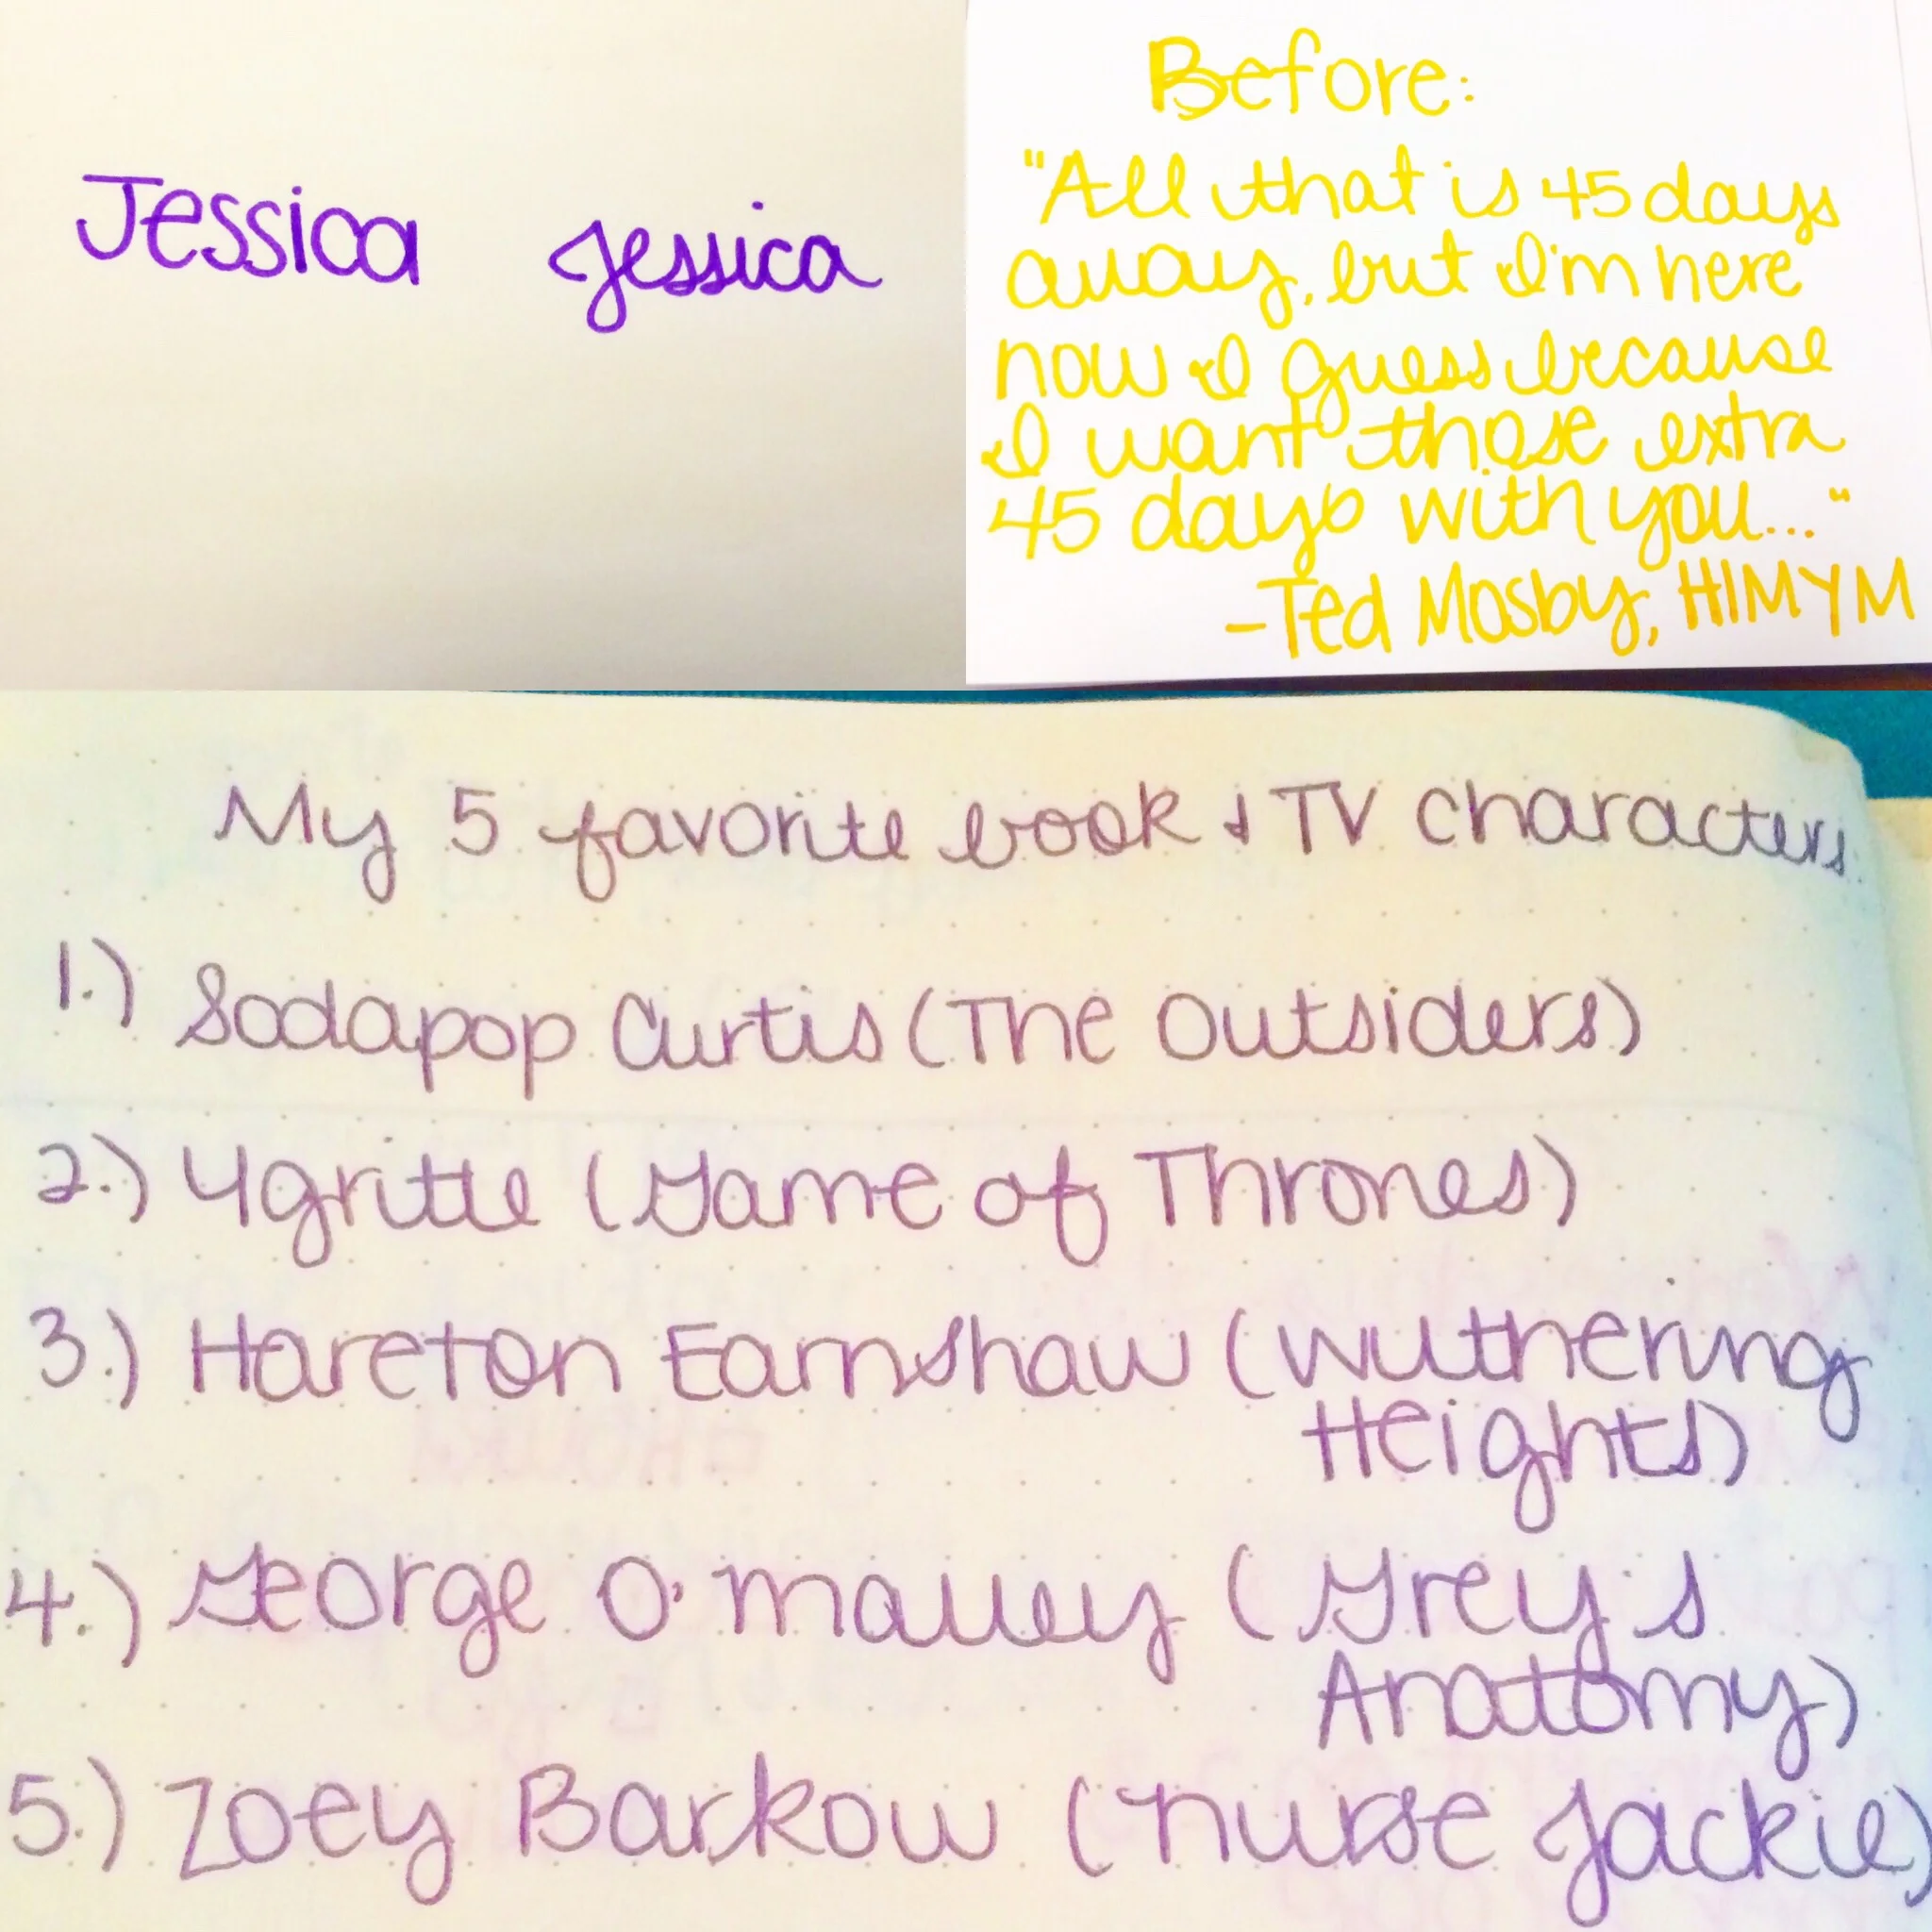 Jessica Jessica
Before:
"All that is 45 days
away, but I'm here
now I guess because
I want those extra
45 days with you..."
-Ted Mosby, HIMYM
My 5 favorite book & TV characters
1.) Sodapop Curtis (The Outsiders)
2.) Ygritte (Game of Thrones)
3.) Hareton Earnshaw (Wuthering
Heights)
4.) George O'malley (Grey's
Anatomy)
5.) Zoey Barkow (nurse Jackie)